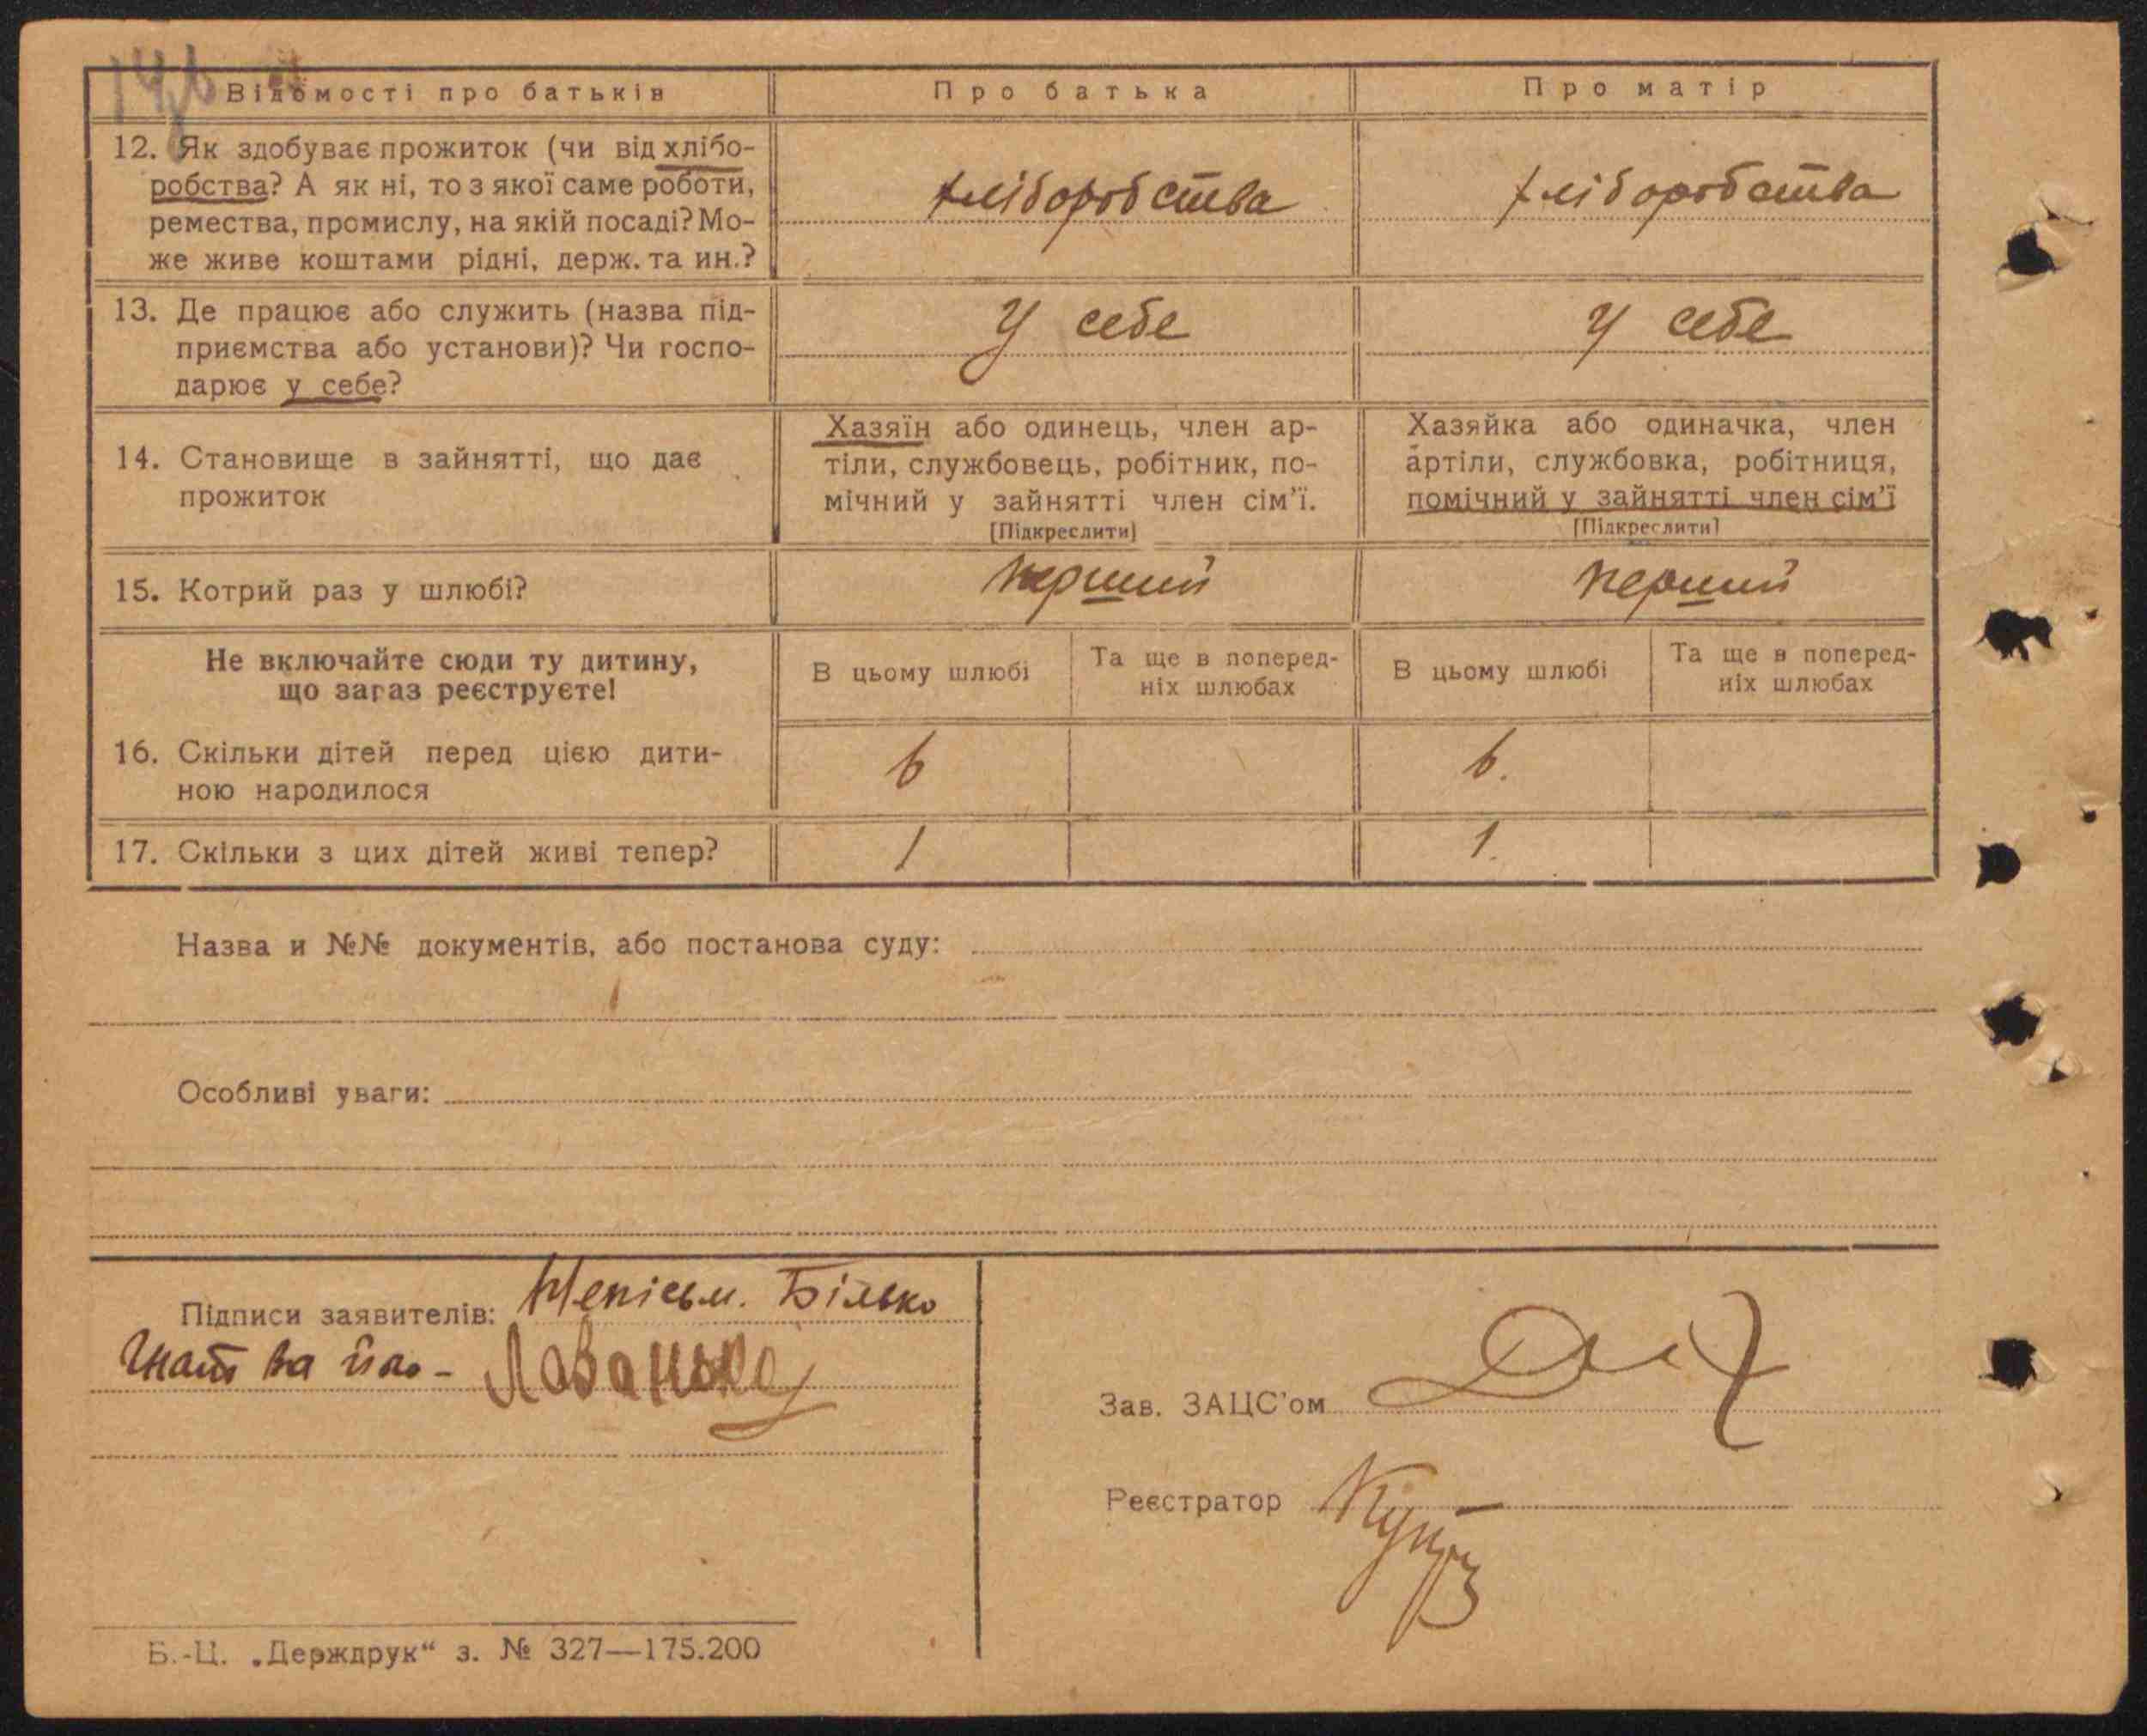 Відомості про батьків
Про батька
Про матір
12. Як здобуває прожиток (чи від хлібо-
робства? А як ні, то з якої саме роботи,
ремества, промислу, на якій посаді? Мо-
же живе коштами рідні, держ. та ин.?
хліборобства
хліборобства
13. Де працює або служить (назва під-
приємства або установи)? Чи госпо-
дарює у себе?
У себе
У себе
14. Становище в зайнятті, що дає
прожиток
Хазяїн або одинець, член ар-
тіли, службовець, робітник, по-
мічний у зайнятті член сім'ї.
[Підкреслити]
Хазяйка або одиначка, член
артіли, службовка, робітниця,
помічний у зайнятті член сім'ї
[Підкреслити]
15. Котрий раз у шлюбі?
перший
перший
Не включайте сюди ту дитину,
що зараз реєструєте!
В цьому шлюбі
Та ще в поперед-
ніх шлюбах
В цьому шлюбі
Та ще в поперед-
ніх шлюбах
16. Скільки дітей перед цією дити-
ною народилося
6
6.
17. Скільки з цих дітей живі тепер?
1
1.
Назва и №№ документів, або постанова суду:
Особливі уваги:
Підписи заявителів: Неписьм. Білько
Гнат за його –
Зав. ЗАЦС'ом
Реєстратор
Б.-Ц. „Держдрук“ з. № 327—175.200